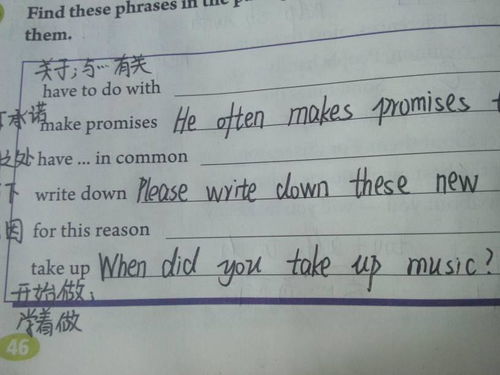 Find these phrases in the
them.
关于；与…有关
have to do with
承诺
make promises He often makes promises
have ... in common
write down Please write down these new
for this reason
take up When did you take up music?
开始做；
学着做
46